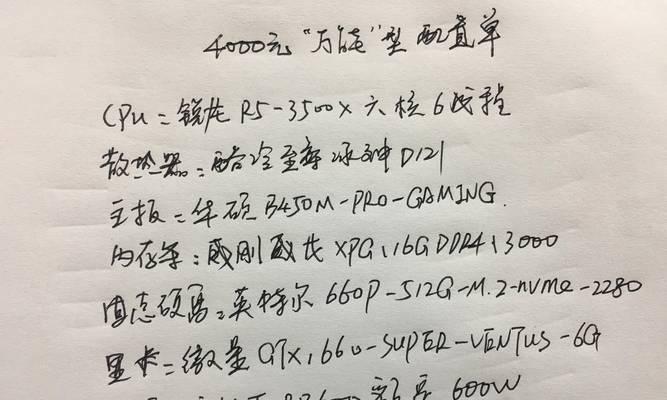 4000元“万能”型配置单
CPU=锐龙R5-3500X六核6线程
散热器=酷冷至尊冰神D121
主板=华硕B450M-PRO-GAMING.
内存条:威刚威龙XPG、16GDDR4、3000
固态硬盘=英特尔660P-512G-M.2-nvme-2280
显卡=微星GTX1660-SUPER-VENTUS-6G
额定600W